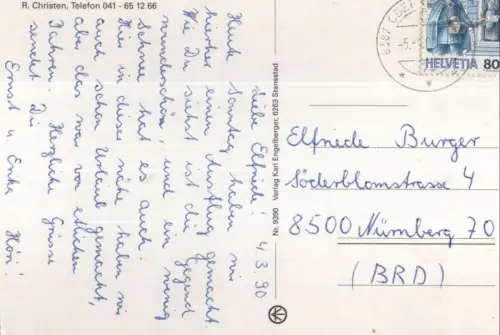 R. Christen, Telefon 041 - 65 12 66
4.3.90
Liebe Elfriede!
Heute Sonntag haben wir
hierher einen Ausflug gemacht.
Wie Du siehst ist die Gegend
wunderschön, und ein wenig
Schnee hat es auch.
Hier in dieser nähe haben wir
auch schon Urlaub gemacht,
aber das war vor etlichen
Jahren. Herzliche Grüsse
sendet Dir
Ernst u. Erika
Nr. 9390 Verlag Karl Engelberger, 6263 Stansstad
6387
-5.-
HELVETIA 80
Elfriede Burger
Söderblomstrasse 4
8500 Nürnberg 70
(BRD)